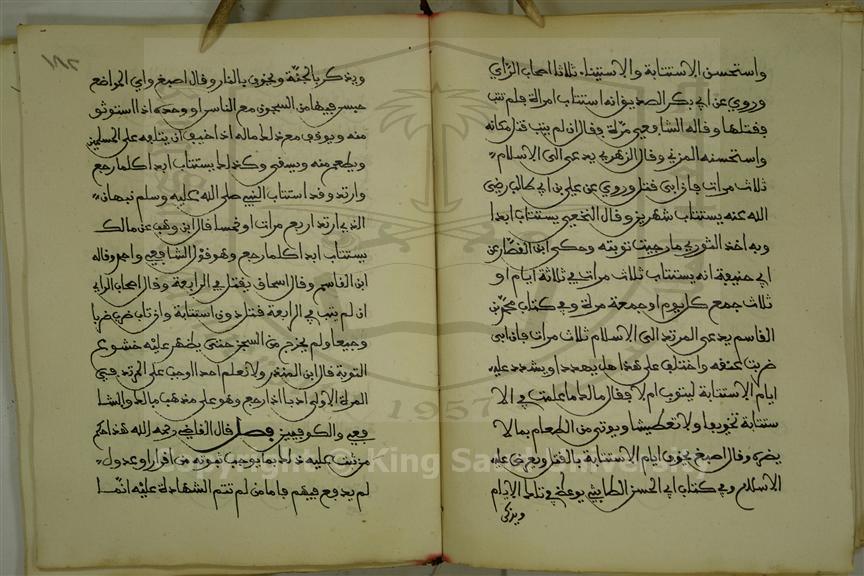 واستحسن الاستتابة والاستيناء ثلاثا اصحاب الراي
وروي عن ابي بكر الصديق انه استتاب امراة فلم تتب
فقتلها وقاله الشافعي مرة فقال ان لم يتب قتل مكانه
واستحسنه المزني وقال الزهري يدعى الى الاسلام
ثلاث مرات فان ابى قتل وروي عن علي بن ابي طالب رضي
الله عنه يستتاب شهرين وقال النخعي يستتاب ابدا
وبه اخذ الثوري ما رجيت توبته وحكى ابن القصار عن
ابي حنيفة انه يستتاب ثلاث مرات في ثلاثة ايام او
ثلاث جمع كل يوم او جمعة مرة وفي كتاب محمد بن
القاسم يدعى المرتد الى الاسلام ثلاث مرات فان ابى
ضربت عنقه واختلف على هذا هل يهدد او يشدد عليه
ايام الاستتابة ليتوب ام لا فقال مالك ما علمت في الا
ستتابة تجويعا ولا تعطيشا ويوتى من الطعام بما لا
يضره وقال اصبغ يخوف ايام الاستتابة بالقتل ويعرض عليه
الاسلام وفي كتاب ابي الحسن الطابثي يوعظ في تلك الايام
ويذكر
١١٢
ويذكر بالجنة ويخوف بالنار وقال اصبغ واي المواضع
حبس فيها من السجون مع الناس او وحده اذا استوثق
منه ويوقف معه ذلك ماله اذا خيف ان يتلفه على المسلمين
ويطعم منه ويسقى وكذلك يستتاب ابدا كلما رجع
وارتد وقد استتاب النبي صلى الله عليه وسلم نبهان
الذي ارتد اربع مرات او خمسا قال ابن وهب عن مالك
يستتاب ابدا كلما رجع وهو قول الشافعي واحمد وقاله
ابن القاسم وقال اسحاق يقتل في الرابعة وقال اصحاب الراي
ان لم يتب في الرابعة قتل دون استتابة وان تاب ضرب ضربا
وجيعا ولم يخرج من السجن حتى يظهر عليه خشوع
التوبة قال ابن المنذر ولا نعلم احدا اوجب على المرتد في
المرة الاولى ادبا اذا رجع وهو على مذهب مالك والشا
فعي والكوفيين فصل قال القاضي رحمه الله هذا حكم
من ثبت عليه ذلك بما يوجب ثبوته من اقرار او عدول
لم يدفع فيهم فاما من لم تتم الشهادة عليه انما
1957
Copyright © King Saud University